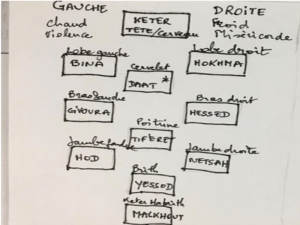 GAUCHE
DROITE
Chaud
Froid
violence
Miséricorde
KETER
TÊTE/Cerveau
Lobe gauche
Lobe droit
BINA
HOKHMA
Cervelet
DAAT *
Bras gauche
Bras droit
GVOURA
HESSED
Poitrine
TIFERET
Jambe droite
HOD
NETSAH
Brith
YESSOD
MALKHOUT